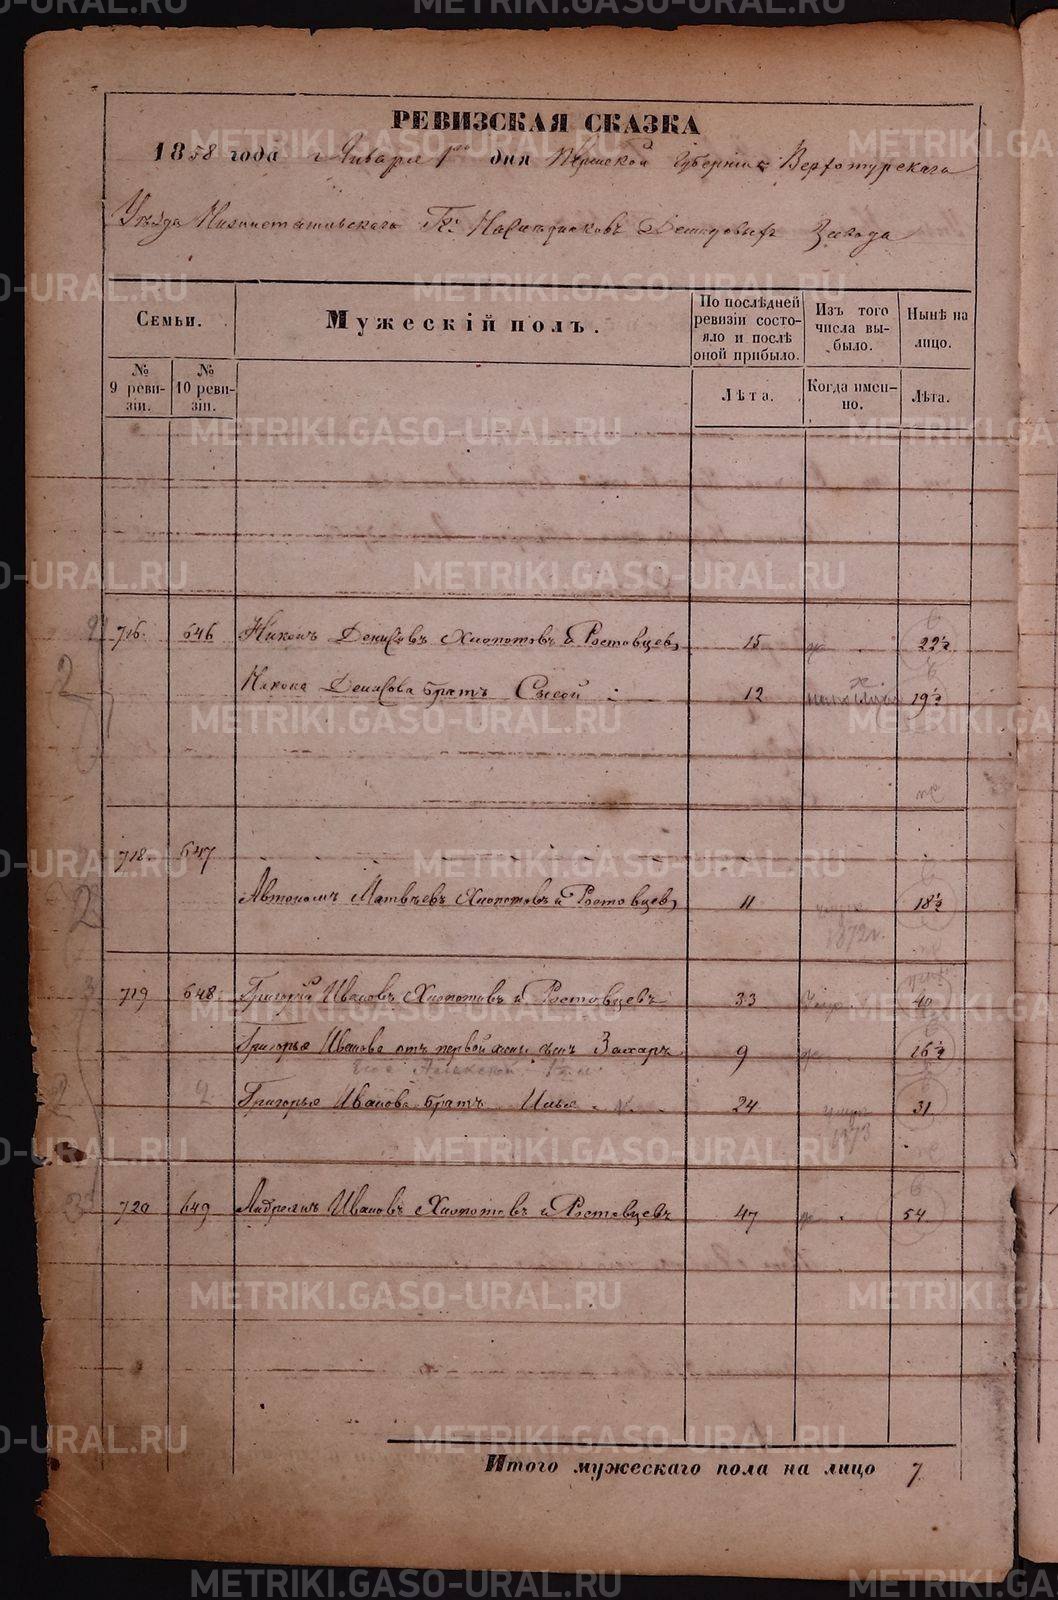 РЕВИЗСКАЯ СКАЗКА
1858 года Января 1го дня Пермской Губерніи Верхотурскаго
Уѣзда Нижнетагильскаго Гг. Наслѣдниковъ Демидовыхъ Завода
Семьи.
Мужескій полъ.
По послѣдней ревизіи состояло и послѣ оной прибыло.
Изъ того числа выбыло.
Нынѣ на лицо.
№ 9 ревизіи.
№ 10 ревизіи.
Лѣта.
Когда именно.
Лѣта.
716. 646 Никонъ Денисовъ Хлопотовъ и Ростовцевъ 15 22½
Никона Денисова братъ Сысой 12 19½
718. 647
Автономъ Матвѣевъ Хлопотовъ и Ростовцевъ 11 18½
1872г.
719 648 Григорій Ивановъ Хлопотовъ и Ростовцевъ 33 40
Григорья Иванова отъ первой жены сынъ Захаръ 9 16½
Григорья Иванова братъ Илья 24 31
1873
720 649 Андреянъ Ивановъ Хлопотовъ и Ростовцевъ 47 54
Итого мужескаго пола на лицо 7
METRIKI.GASO-URAL.RU